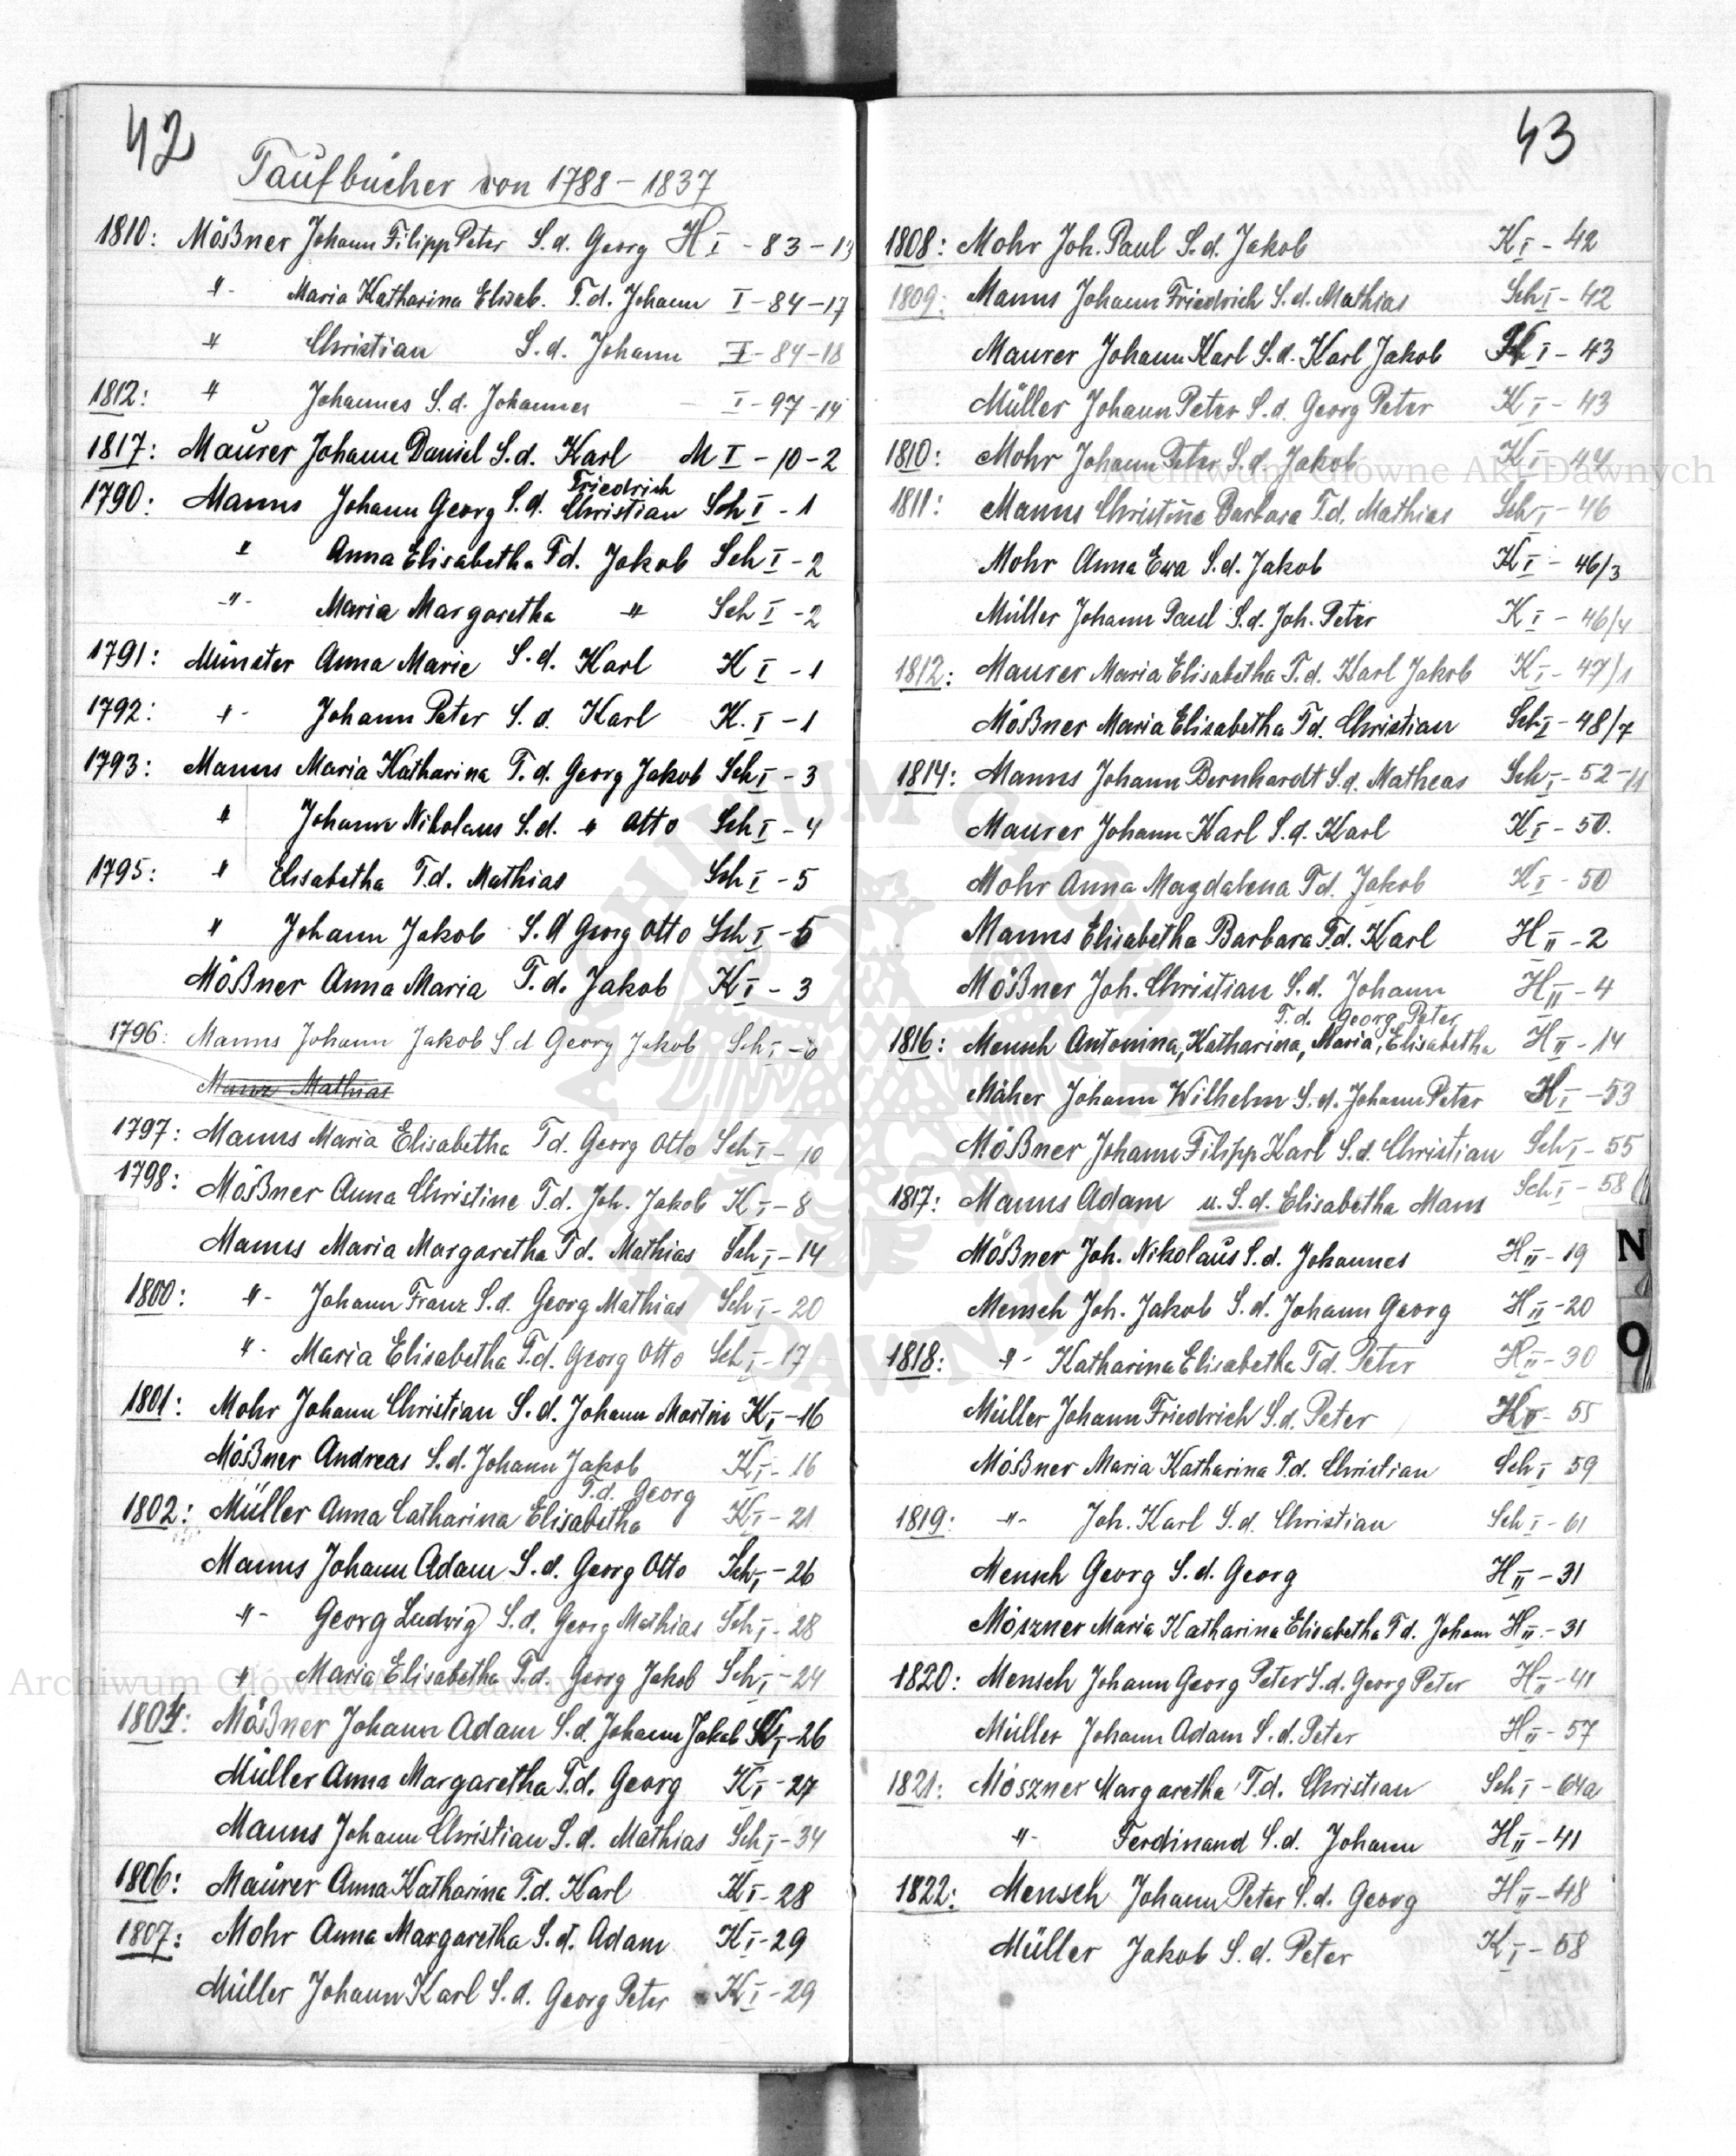 42
Taufbücher von 1788 - 1837
1810: Mößner Johann Filipp Peter S.d. Georg H I - 83 - 13
" - Maria Katharina Elisab. T.d. Johann I - 84 - 17
" Christian S.d. Johann I - 84 - 18
1812: " Johannes S.d. Johannes - I - 97 - 14
1817: Maurer Johann Daniel S.d. Karl M I - 10 - 2
Friedrich
1790: Manns Johann Georg S.d. Christian Sch I - 1
" Anna Elisabetha Td. Jakob Sch I - 2
- " - Maria Margaretha " Sch I - 2
1791: Münster Anna Marie S.d. Karl K I - 1
1792: " - Johann Peter S.d. Karl K. I - 1
1793: Manns Maria Katharina T.d. Georg Jakob Sch I - 3
" Johann Nikolaus S.d. " Otto Sch I - 4
1795: " Elisabetha T.d. Mathias Sch I - 5
" Johann Jakob S.d Georg Otto Sch I - 5
Mößner Anna Maria T.d. Jakob K I - 3
1796: Manns Johann Jakob S d Georg Jakob Sch I - 6
Manz Mathias
1797: Manns Maria Elisabetha Td. Georg Otto Sch I - 10
1798: Mößner Anna Christine T.d. Joh. Jakob K I - 8
Manns Maria Margaretha Td. Mathias Sch I - 14
1800: " - Johann Franz S.d. Georg Mathias Sch I - 20
" - Maria Elisabetha T.d. Georg Otto Sch I - 17
1801: Mohr Johann Christian S.d. Johann Martin K I - 16
Mößner Andreas S.d. Johann Jakob K I - 16
T.d. Georg
1802: Müller Anna Catharina Elisabetha K I - 21
Manns Johann Adam S.d. Georg Otto Sch I - 26
" - Georg Ludwig S.d. Georg Mathias Sch I - 28
" Maria Elisabetha T.d. Georg Jakob Sch I - 24
1804: Mößner Johann Adam S.d. Johann Jakob K I - 26
Müller Anna Margaretha T.d. Georg K I - 27
Manns Johann Christian S.d. Mathias Sch I - 34
1806: Maurer Anna Katharina T.d. Karl K I - 28
1807: Mohr Anna Margaretha S.d. Adam K I - 29
Müller Johann Karl S.d. Georg Peter K I - 29
43
1808: Mohr Joh. Paul S.d. Jakob K I - 42
1809: Manns Johann Friedrich S.d. Mathias Sch I - 42
Maurer Johann Karl S.d. Karl Jakob K I - 43
Müller Johann Peter S.d. Georg Peter K I - 43
1810: Mohr Johann Peter S.d. Jakob K I - 44
1811: Manns Christine Barbara T.d. Mathias Sch I - 46
Mohr Anna Ewa S.d. Jakob K I - 46/3
Müller Johann Paul S.d. Joh. Peter K I - 46/4
1812: Maurer Maria Elisabetha T.d. Karl Jakob K I - 47/1
Mößner Maria Elisabetha Td. Christian Sch I - 48/7
1814: Manns Johann Bernhardt S.d. Matheas Sch I - 52 - 11
Maurer Johann Karl S.d. Karl K I - 50.
Mohr Anna Magdalena Td. Jakob K I - 50
Manns Elisabetha Barbara T.d. Karl H II - 2
Mößner Joh. Christian S.d. Johann H II - 4
T.d. Georg Peter
1816: Mensch Antonina, Katharina, Maria, Elisabetha H II - 14
Mäher Johann Wilhelm S.d. Johann Peter H I - 53
Mößner Johann Filipp Karl S.d. Christian Sch I - 55
1817: Manns Adam u. S.d. Elisabetha Mans Sch I - 58
Mößner Joh. Nikolaus S.d. Johannes H II - 19
N
Mensch Joh. Jakob S.d. Johann Georg H II - 20
O
1818: " - Katharina Elisabetha Td. Peter H II - 30
Müller Johann Friedrich S.d. Peter 55
Mößner Maria Katharina T.d. Christian Sch I 59
1819: " - Joh. Karl S.d. Christian Sch I - 61
Mensch Georg S.d. Georg H II - 31
Möszner Maria Katharina Elisabetha Td. Johann H II - 31
1820: Mensch Johann Georg Peter S.d. Georg Peter H II - 41
Müller Johann Adam S.d. Peter H II - 57
1821: Möszner Margaretha T.d. Christian Sch I - 64a
" - Ferdinand S.d. Johann H II - 41
1822: Mensch Johann Peter S.d. Georg H II - 48
Müller Jakob S.d. Peter K I - 58
Archiwum Główne Akt Dawnych
Archiwum Główne Akt Dawnych
ARCHIWUM GŁÓWNE AKT DAWNYCH